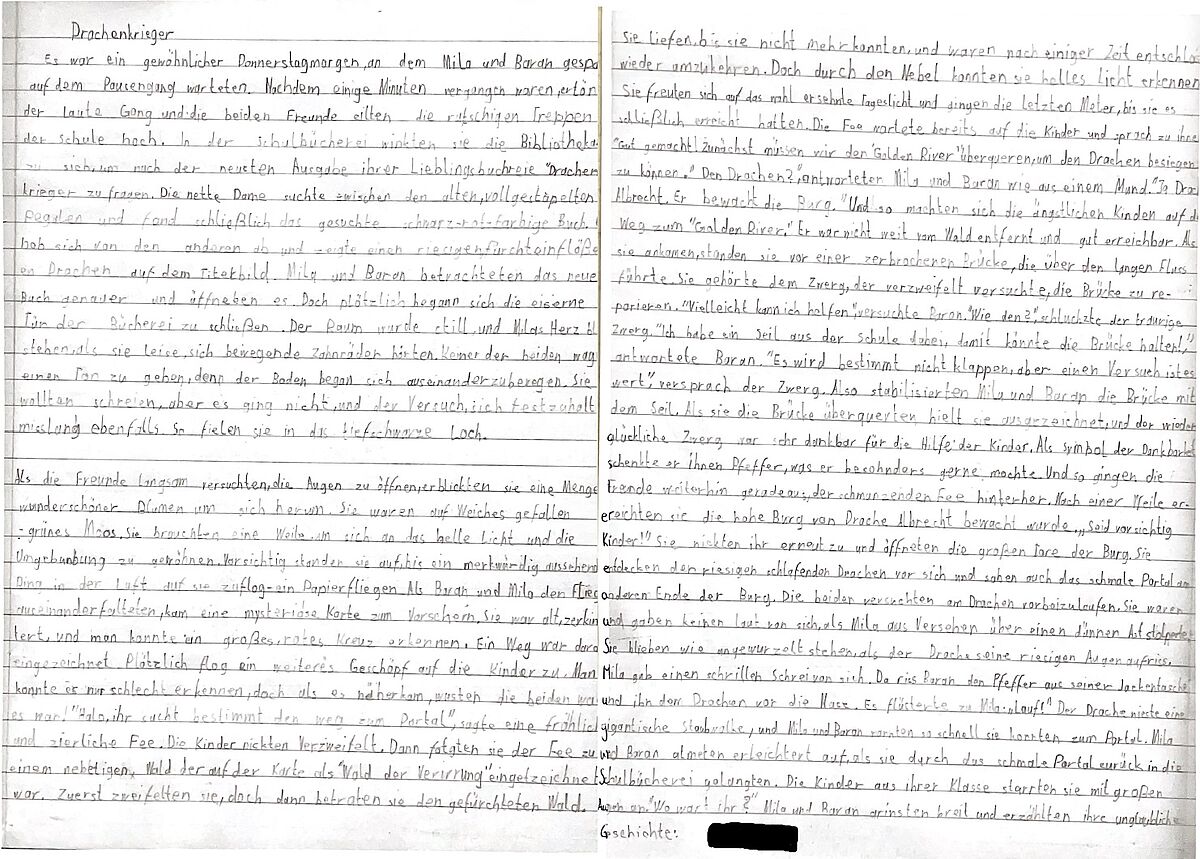 Drachenkrieger
Es war ein gewöhnlicher Donnerstagmorgen, an dem Mila und Baran gespa
auf dem Pausengang warteten. Nachdem einige Minuten vergangen waren, ertön
der laute Gong und die beiden Freunde eilten die rutschigen Treppen
der Schule hoch. In der Schulbücherei winkten sie die Bibliotheka
zu sich, um nach der neusten Ausgabe ihrer Lieblingsbuchreie "Drachen
krieger zu fragen. Die nette Dame suchte zwischen den alten, vollgestapelten
Regalen und fand schließlich das gesuchte schwarz-rot-farbige Buch.
hob sich von den anderen ab und zeigte einen riesigen fürchteinflöße
en Drachen auf dem Titelbild. Mila und Baran betrachteten das neue
Buch genauer und öffneben es. Doch plötzlich begann sich die eiserne
Tür der Bücherei zu schließen. Der Raum wurde still, und Milas Herz bl
stehen, als sie leise, sich bewegende Zahnräder hörten. Keiner der beiden wag
einen Ton zu gehen, denn der Boden began sich auseinanderzubewegen. Sie
wollten schreien, aber es ging nicht, und der Versuch, sich festzuhalt
misslang ebenfalls. So fielen sie in das tiefschwarze Loch.
Als die Freunde langsam versuchten, die Augen zu öffnen, erblickten sie eine Menge
wunderschöner Blumen um sich herum. Sie waren auf Weiches gefallen
-grünes Moos. Sie brauchten eine Weile, um sich an das helle Licht und die
Umgebunbung zu gewöhnen. Vorsichtig standen sie auf, bis ein merkwürdig aussehend
Ding in der Luft auf sie zuflog-ein Papierfliegen. Als Baran und Mila den Flieg
auseinanderfalteten, kam eine mysteriöse Karte zum Vorschein. Sie war alt, zerknit
tert, und man konnte ein großes, rotes Kreuz erkennen. Ein Weg war dara
eingezeichnet. Plötzlich flog ein weiteres Geschöpf auf die Kinder zu. Man
konnte es nur schlecht erkennen, doch als es näherkam, wusten die beiden wa
es war! "Halo, ihr sucht bestimmt den weg zum Portal", sagte eine fröhlich
und zierliche Fee. Die Kinder nickten Verzweifelt. Dann folgten sie der Fee zu
einem nebeligen, Wald der auf der Karte als "Wald der Verirrung" eingezeichnet
war. Zuerst zweifelten sie, doch dann betraten sie den gefürchteten Wald.
Sie liefen, bis sie nicht mehr konnten, und waren nach einiger Zeit entschlo
wieder umzukehren. Doch durch den Nebel konnten sie helles Licht erkennen
Sie freuten sich auf das wohl ersehnte Tageslicht und gingen die letzten Meter, bis sie es
schließlich erreicht hatten. Die Fee wartete bereits auf die Kinder und sprach zu ihne
"Gut gemacht! Zunächst müssen wir den "Golden River" überqueren, um den Drachen besiegen
zu können." Den Drachen?", antworteten Mila und Baran wie aus einem Mund. "Ja Dra
Albrecht. Er bewacht die Burg." Und so machten sich die ängstlichen Kinden auf d
Weg zum "Golden River." Er war nicht weit vom Wald entfernt und gut erreichbar. Als
sie ankamen, standen sie vor einer zerbrochenen Brücke, die über den langen Fluss
führte. Sie gehörte dem Zwerg, der verzweifelt versuchte, die Brücke zu re-
parieren. "Vielleicht kann ich helfen", versuchte Baran. "Wie den?", schluchzte der traurige
Zwerg. "Ich habe ein Seil aus der Schule dabei, damit könnte die Brücke halten!,"
antwortete Baran. "Es wird bestimmt nicht klappen, aber einen Versuch ist es
wert", versprach der Zwerg. Also stabilisierten Mila und Baran die Brücke mit
dem Seil. Als sie die Brücke überquerten hielt sie ausgezeichnet, und der wieder
glückliche Zwerg war sehr dankbar für die Hilfe der Kinder. Als Symbol der Dankbarkeit
schenkte er ihnen Pfeffer, was er besohnders gerne mochte. Und so gingen die
Freunde weiterhin geradeaus, der schmunzenden Fee hinterher. Nach einer Weile er-
ereichten sie die hohe Burg von Drache Albrecht bewacht wurde. „Seid vorsichtig
Kinder!" Sie nickten ihr erneut zu und öffneten die großen Tore der Burg. Sie
entdecken den riesigen schlafenden Drachen vor sich und sahen auch das schmale Portal am
anderen Ende der Burg. Die beiden versuchten am Drachen vorbeizulaufen. Sie waren
und gaben keinen laut von sich, als Mila aus Versehen über einen dünnen Ast stolperte
Sie blieben wie angewurzelt stehen, als der Drache seine riesigen Augen aufriss.
Mila gab einen schrillen Schrei von sich. Da riss Baran den Pfeffer aus seiner Jackentasche
und ihn dem Drachen vor die Nase. Es flüsterte zu Mila: „Lauf!" Der Drache nieste eine
gigantische Staubwolke, und Mila und Baran rannten so schnell sie konnten zum Portal. Mila
und Baran atmeten erleichtert auf, als sie durch das schmale Portal zurück in die
Schulbücherei gelangten. Die Kinder aus ihrer Klasse starrten sie mit großen
Augen an. "Wo wart ihr?" Mila und Baran grinsten breit und erzählten ihre unglaubliche
Gschichte.